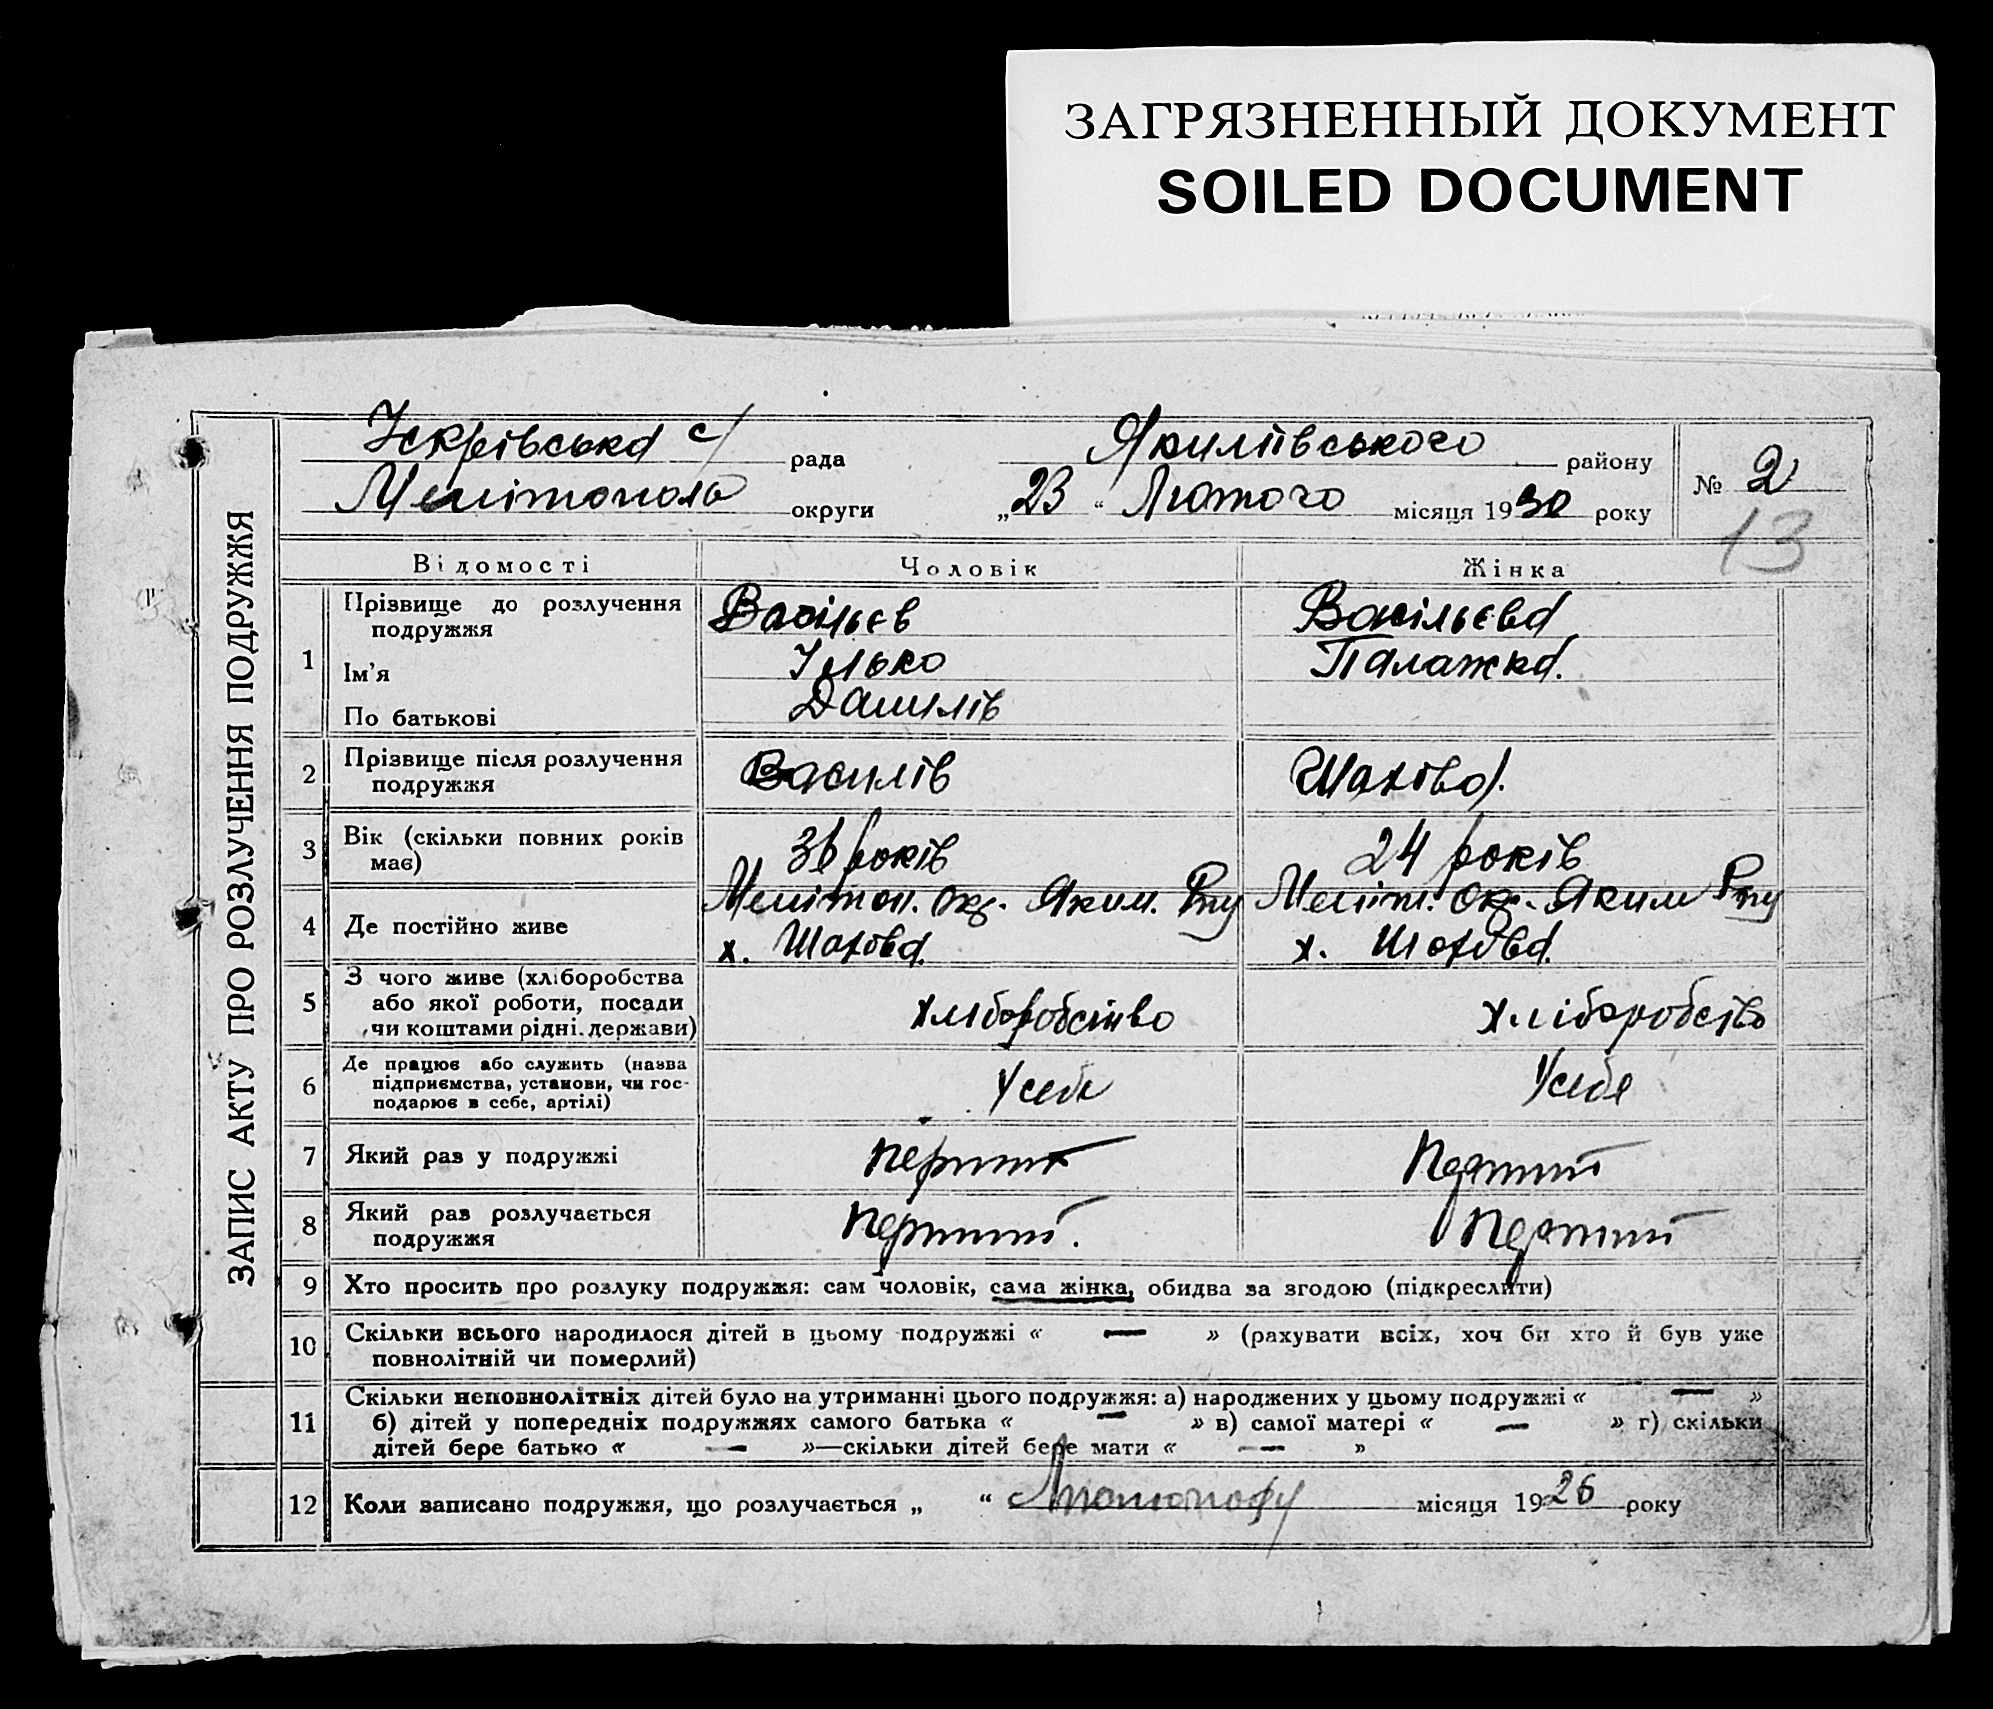 ЗАГРЯЗНЕННЫЙ ДОКУМЕНТ
SOILED DOCUMENT
ЗАПИС АКТУ ПРО РОЗЛУЧЕННЯ ПОДРУЖЖЯ
Іскрівська с/ рада Якимівського району
№ 2
Мелітополь округи „23“ Лютого місяця 1930 року
13
Відомості Чоловік Жінка
1
Прізвище до розлучення подружжя Васільєв Васільєва
Ім'я Ілько Палажка.
По батькові Данилів
2 Прізвище після розлучення
подружжя
Василів Шахова.
3 Вік (скільки повних років
має)
років 24 років
4 Де постійно живе
Меліток. окр. Яким. Рну Меліт. окр. Яким Рну
х. Шахова. х. Шахова.
5 З чого живе (хліборобства
або якої роботи, посади
чи коштами рідні. держави)
хліборобство хліборобство
6 Де працює або служить (назва
підприємства, установи, чи гос-
подарює в себе, артілі)
У себе У себе
7 Який раз у подружжі перший Перший
8 Який раз розлучається
подружжя
Перший. Перший
9 Хто просить про розлуку подружжя: сам чоловік, сама жінка, обидва за згодою (підкреслити)
10 Скільки всього народилося дітей в цьому подружжі « — » (рахувати всіх, хоч би хто й був уже
повнолітній чи померлий)
11 Скільки неповнолітніх дітей було на утриманні цього подружжя: а) народжених у цьому подружжі « — »
б) дітей у попередніх подружжях самого батька « — » в) самої матері « — » г) скільки
дітей бере батько « — »—скільки дітей бере мати « — »
12 Коли записано подружжя, що розлучається „ “ місяця 1926 року